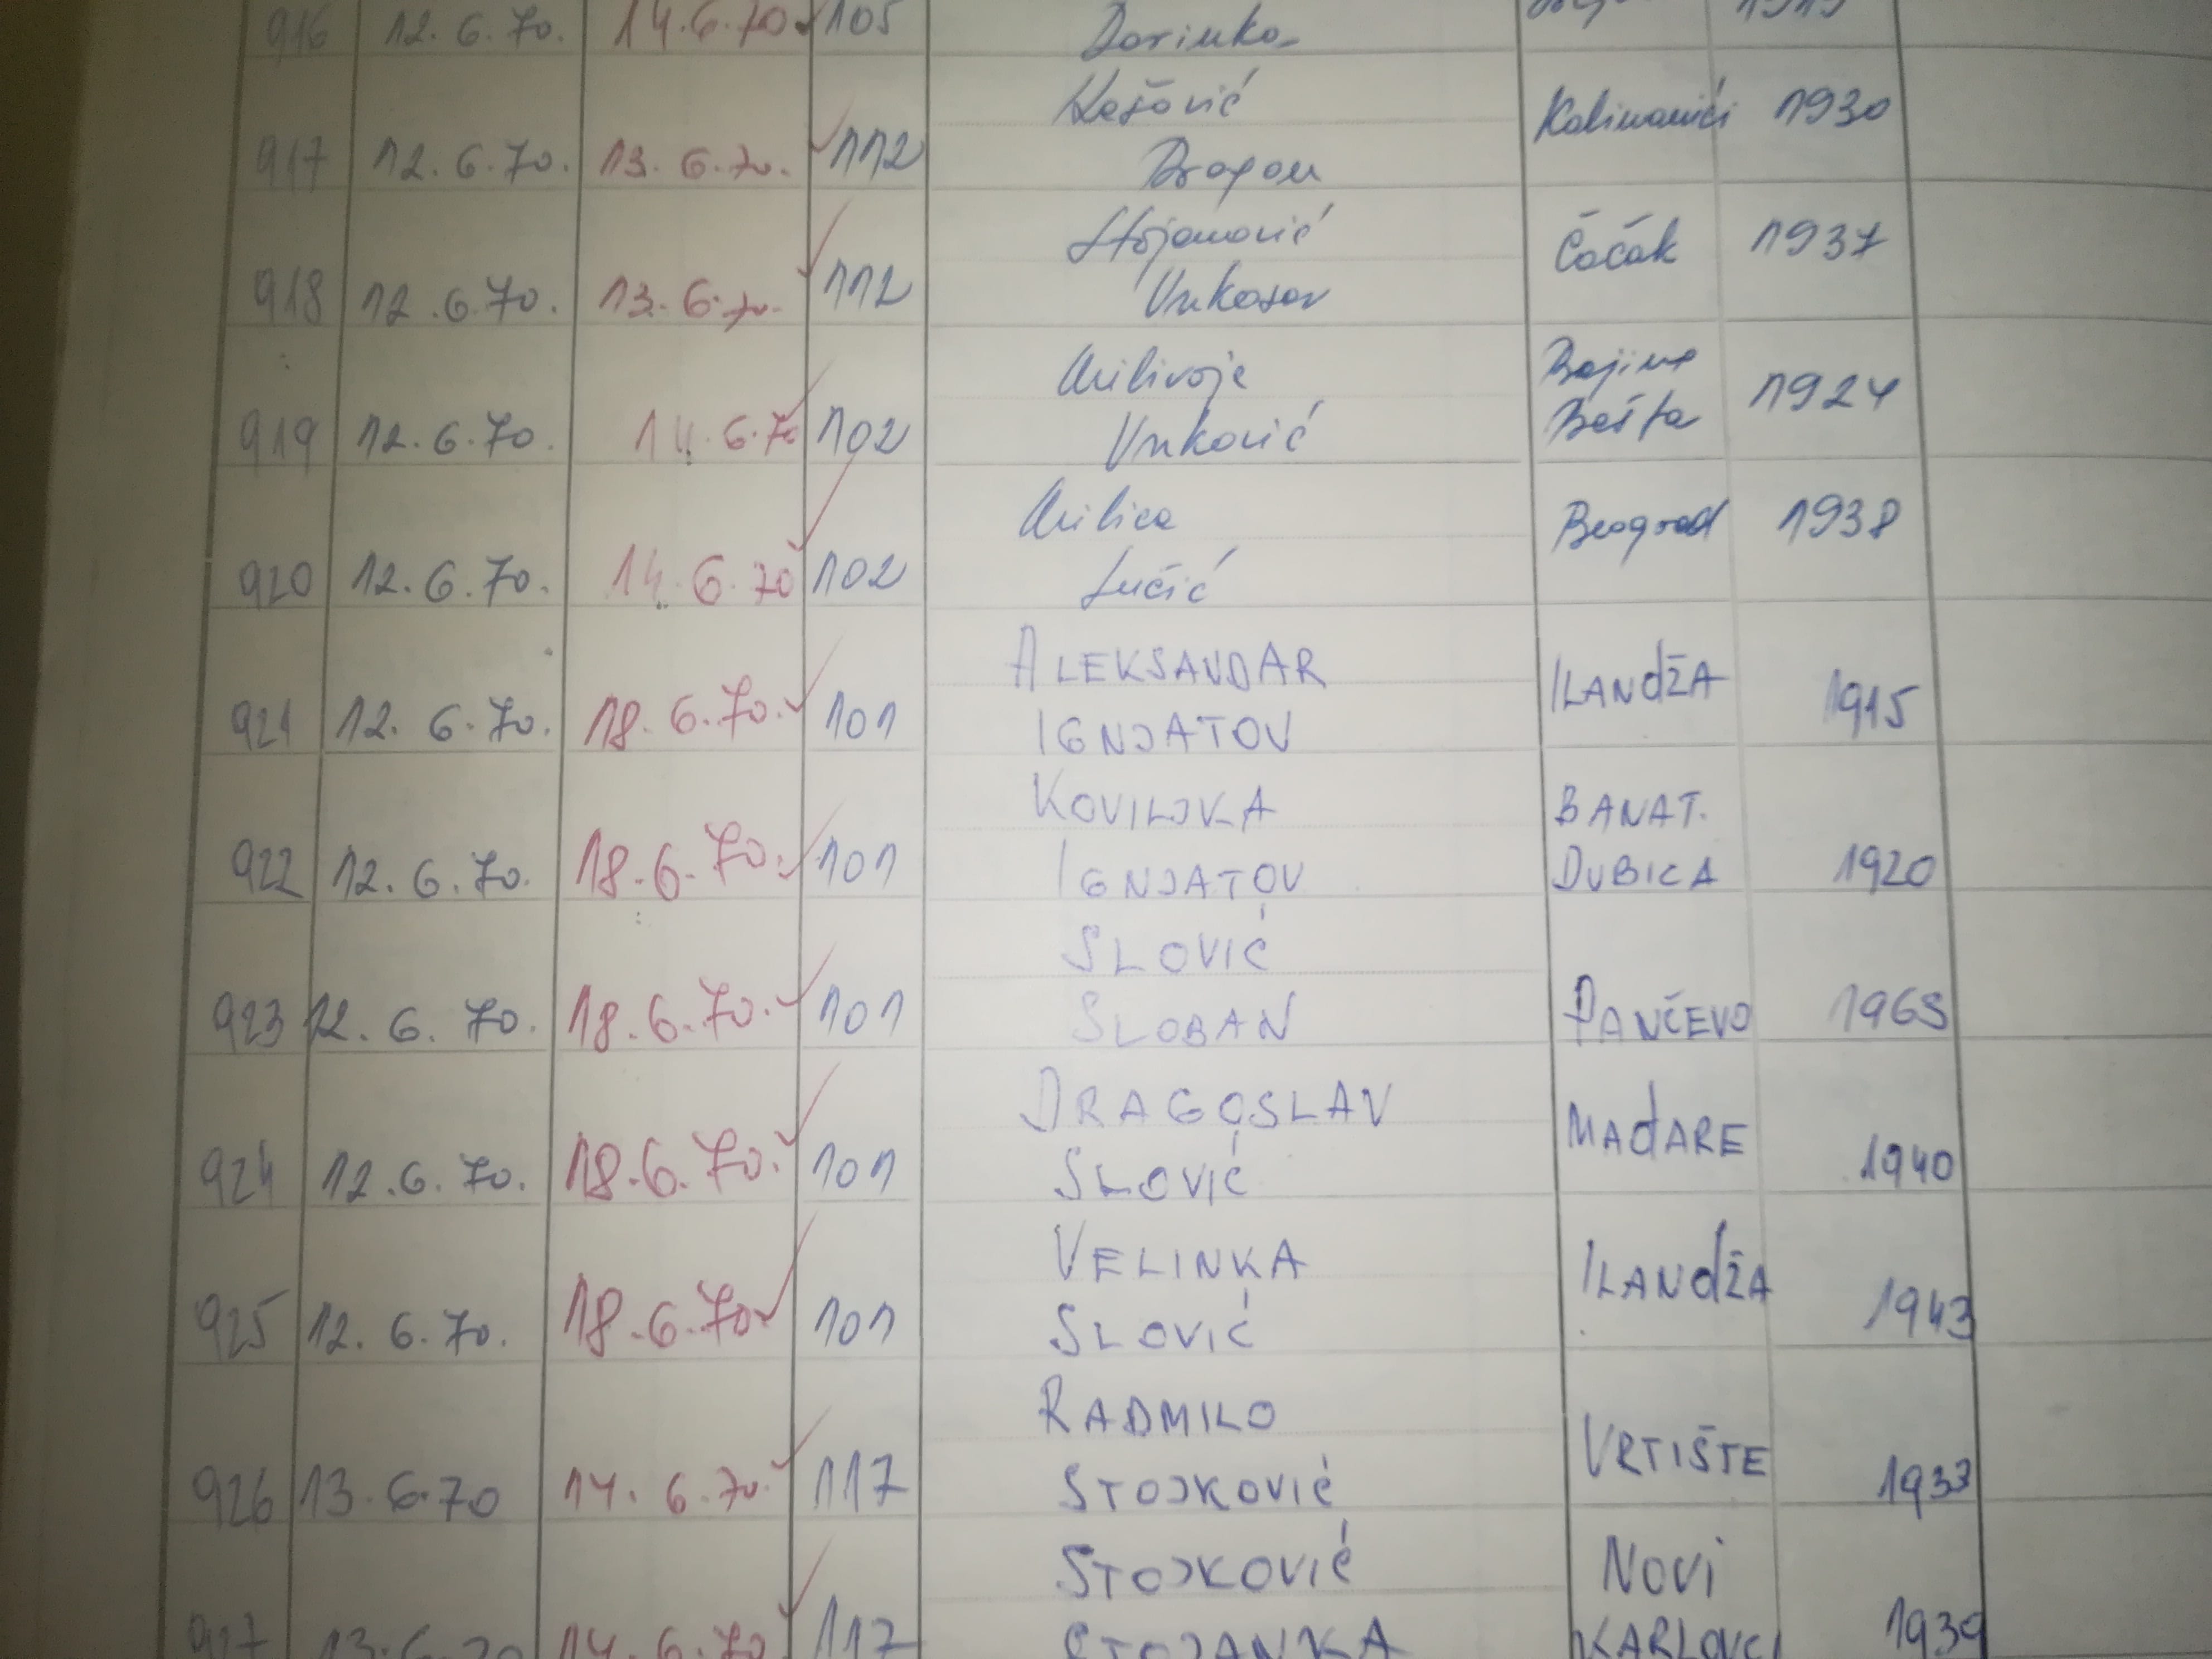 916 12. 6. 70. 14. 6. 70 105 Dorinka 1919
Kešović
917 12. 6. 70. 13. 6. 70. 112 Dragan Kalinovići 1930
Stojanović
918 12. 6. 70. 13. 6. 70. 112 Vukosav Čačak 1937
Milivoje Bajina
919 12. 6. 70. 14. 6. 70 102 Vuković Bašta 1924
Milica
920 12. 6. 70. 14. 6. 70 102 Lučić Beograd 1938
ALEKSANDAR
921 12. 6. 70. 18. 6. 70. 101 IGNJATOV ILANdŽA 1915
KOVILJKA BANAT.
922 12. 6. 70. 18. 6. 70. 101 IGNJATOV DUBICA 1920
SLOVIĆ
923 12. 6. 70. 18. 6. 70. 101 SLOBAN PANČEVO 1968
DRAGOSLAV
924 12. 6. 70. 18. 6. 70. 101 SLOVIĆ MAđARE 1940
VELINKA
925 12. 6. 70. 18. 6. 70 101 SLOVIĆ ILANdŽA 1943
RADMILO
926 13. 6. 70 14. 6. 70. 117 STOJKOVIĆ VRTIŠTE 1933
STOJKOVIĆ NOVI
927 13. 6. 70 14. 6. 70 117 STOJANKA KARLOVCI 1939